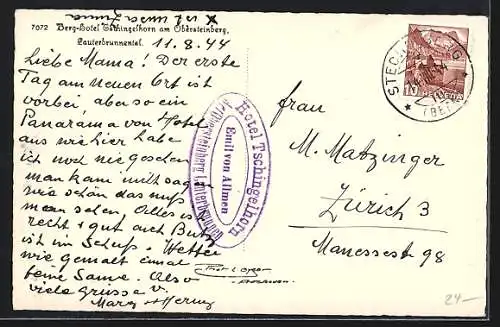 7072 Berg-Hotel Tschingelhorn am Obersteinberg,
Lauterbrunnental.
11.8.44
Liebe Mama! Der erste
Tag am neuen Ort ist
vorbei, aber so ein
Panarama von Hotel
aus wie hier habe
ich noch nie gesehen
man kann nicht sagen
wie schön das muss
man sehen. Alles ist
recht & gut auch Butz
ist im Schuss. Wetter
wie gemalt einmal
keine Saue. Also
viele Grüsse v.
Hotel Tschingelhorn
Emil von Allmen
Obersteinberg Lauterbrunnen
STECHELBERG
(BERN)
Frau
M. Matzinger
Zürich 3
Manessestr 98
24.-